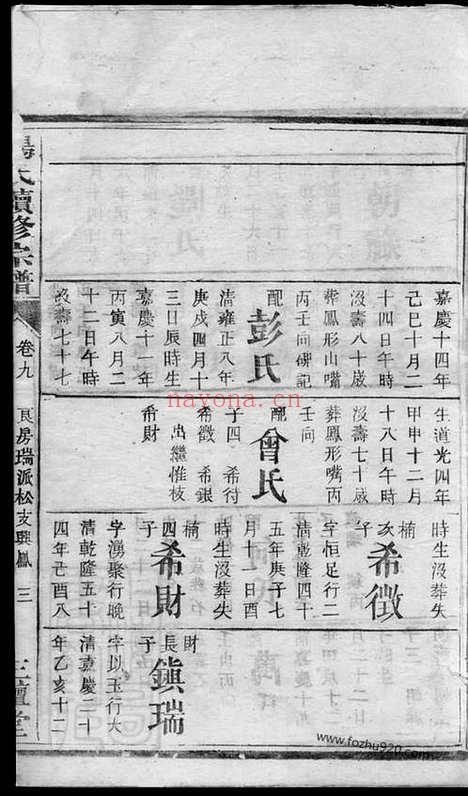 嘉慶十四年
己巳十月二
十四日午時
沒壽八十歲
葬鳳形山嘴
丙壬向碑記
配彭氏
清雍正八年
庚戌四月十
三日辰時生
嘉慶十一年
丙寅八月二
十二日午時
沒壽七十七
生道光四年
甲申十二月
十八日午時
沒壽七十歲
葬鳳形嘴丙
壬向
配曾氏
子四 希待
希徵 希銀
出繼惟枝
希財
時生沒葬失
楠次子希徵
字恒足行二
清乾隆四十
五年庚子七
月十一日酉
時生沒葬失
楠四子希財
字湧聚行晚
清乾隆五十
四年己酉八
財長子鎮瑞
字以玉行大
清嘉慶二十
年乙亥十二
氏續修宗譜
卷九
房瑞派松支興鳳
三
堂
nayona.cn
www.fozhu920.com